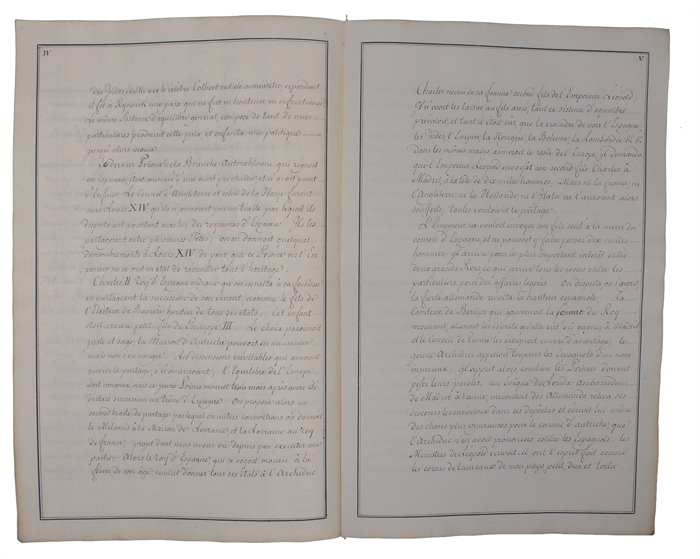 IV
des Indes établie par le célèbre Colbert eut été anéantie, cependant
il fit à Ryswick une paix qui ne fut ni honteuse ni infructueuse
Le même Sistême d'équilibre general, composé de tant de vues
particulieres produisit cette paix, et enfanta une politique
jusqu'alors inouie.
Le dernier Prince de la Branche Autrichienne, qui regnoit
en Espagne, étoit menacé d'une mort prochaine et n'avoit point
d'Enfans. Le Conseil d'Angleterre et celui de la Haye firent
avec Louis XIV qu'ils n'aimoient pas un traité par lequel ils
disposoient pourtant avec lui des royaumes d'Espagne. Ils les
partageoient entre plusieurs Têtes; on en donnoit quelques
démembremens à Louis XIV de peur que ce Prince ou l'Em
pereur ne se mit en état de recueillir tout l'héritage.
Charles II Roy d'Espagne indigné qu'on insulta à sa foiblesse
en partageant la succession de son vivant, nomma le fils de
l'Electeur de Bavière héritier de tous ses états. Cet enfant
étoit arriere petit fils de Philippe III. Le choix paroissoit
juste et sage, la Maison d'Autriche pouvoit en murmurer
mais non s'en vanger. Les divisions inévitables qui auroient
suivi le partage, s'évanouissoient; l'Equilibre de l'Europe
étoit conservé, mais ce jeune Prince mourut trois mois après avoir été
déclaré successeur au trône d'Espagne. On proposa alors un
second traité de partage par lequel entre autres conventions on donnoit
le Milanès à la Maison de Lorraine et la Lorraine au roy
de france; projet dont nous avons vu depuis peu executer une
partie; Alors le roy d'Espagne qui se voyoit mourir à la
fleur de son âge, voulut donner tous ses états à l'Archiduc
V
Charles neveu de sa femme second fils de l'Empereur Léopold,
Il n'osoit les laisser au fils ainé, tant ce sistême d'équilibre
prévaloit, et tant il étoit sûr, que la crainte de voir l'Espagne,
les Indes, l'Empire, la Hongrie, la Bohême, la Lombardie
dans les mêmes mains armeroit le reste de l'Europe, il demanda
que l'Empereur Léopold envoyât son second fils Charles à
Madrid, à la tête de dix mille hommes; Mais ni la france, ni
l'Angleterre, ni la Hollande, ni l'Italie ne l'auroient alors
souffert, toutes vouloient le partage.
L'Empereur ne vouloit envoyer son fils seul à la merci du
conseil d'Espagne et ne pouvoit y faire passer dix mille
hommes, il arriva pour le plus important interêt entre
deux grands Rois ce qui arrive tous les jours entre les
particuliers pour des affaires legeres. On disputa on s'aigrit
la fierté allemande revolta la hauteur espagnole. La
Comtesse de Berlips qui gouvernoit la femme du Roy
mourant, alienoit les esprits qu'elle eût dû gagner à Madrid
et le Conseil de Vienne les éloignoit encore d'avantage, le
jeune Archiduc appelloit toujours les Espagnols d'un nom
injurieux; il apprit alors combien les Princes doivent
peser leurs paroles. un Evêque de Lerida Ambassadeur
de Madrid à Vienne, mécontent des Allemands releva ces
discours les envenima dans ses dépêches et écrivit lui même
des choses plus injurieuses pour le conseil d'autriche, que
l'Archiduc n'en avoit prononcées contre les Espagnols. les
Ministres de Léopold écrivoit il, ont l'esprit fait comme
les cornes de taureaux de mon pays, petit, dur et